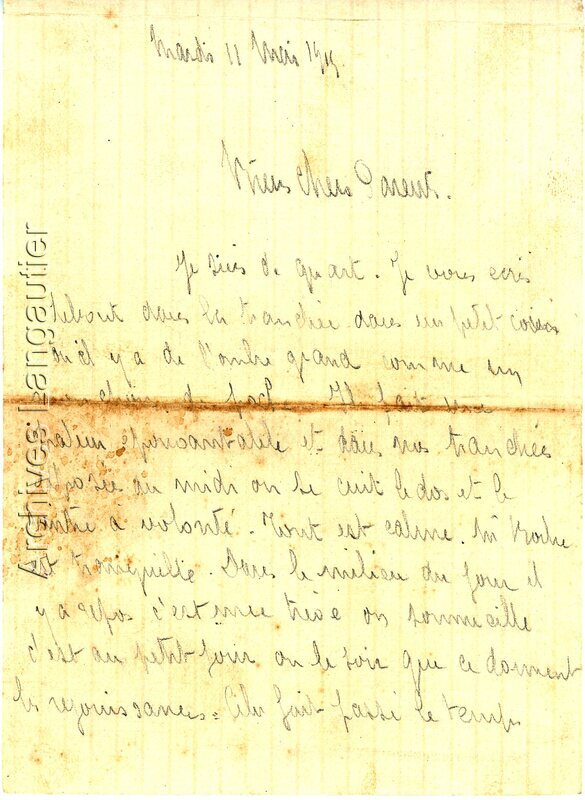 Mardi 11 Mai 1915.
Bien chers Parents.
Je suis de quart. Je vous ecris
debout dans la tranchée dans un petit coin
où il y a de l'ombre grand comme un
de Il fait une
chaleur épouvantable et dans nos tranchés
exposée au midi on se cuit le dos et le
ventre à volonté. Tout est calme. Mr Boche
est tranquille. Dans le milieu du jour il
y a repos c'est une treve on sommeille
c'est au petit jour ou le soir que ce donnent
les rejouissances. Cela fait passé le temps
Archives Langautier